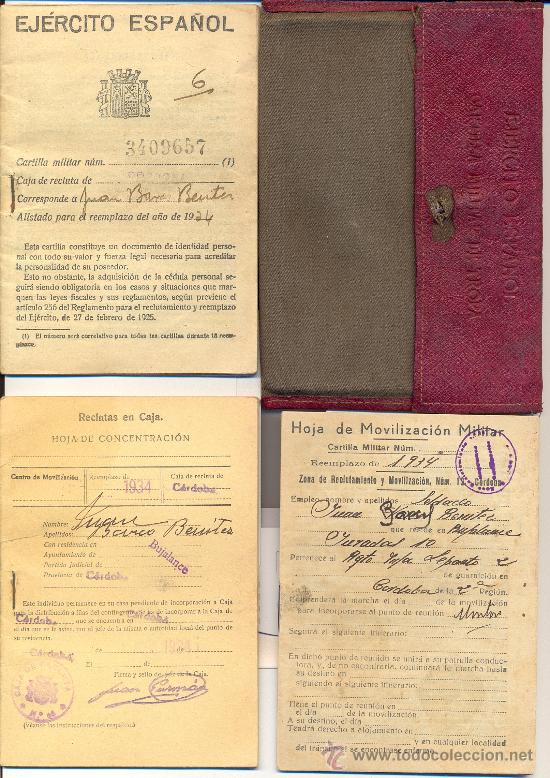 EJÉRCITO ESPAÑOL
6
3409657
Cartilla militar núm. (1)
Caja de recluta de
Corresponde a Juan Benites
Alistado para el reemplazo del año de 1934
Esta cartilla constituye un documento de identidad perso-
nal con todo su valor y fuerza legal necesaria para acreditar
la personalidad de su poseedor.
Esto no obstante, la adquisición de la cédula personal se-
guirá siendo obligatoria en los casos y situaciones que mar-
quen las leyes fiscales y sus reglamentos, según previene el
artículo 256 del Reglamento para el reclutamiento y reemplazo
del Ejército, de 27 de febrero de 1925.
(1) El número será correlativo para todas las cartillas durante 18 reem-
plazos.
Reclutas en Caja.
HOJA DE CONCENTRACIÓN
Centro de Movilización Reemplazo de 1934 Caja de recluta de Córdoba
Nombre: Juan
Apellidos: Benites
Con residencia en
Ayuntamiento de Bujalance
Partido judicial de
Provincia de Córdoba
Este individuo permanece en su casa pendiente de incorporación a Caja
para la distribución a filas del contingente de incorporarse a la Caja de
Córdoba, que se encuentra en
el día que se le avise, por el jefe de la misma o autoridad local del punto de
su residencia.
Córdoba
de de 193
Firma y sello del jefe de la Caja.
(Véanse las instrucciones del respaldo.)
Hoja de Movilización Militar
Cartilla Militar Núm.
Reemplazo de 1934
Zona de Reclutamiento y Movilización, Núm. Córdoba
Empleo, nombre y apellidos Soldado
Juan Benites
que reside en Bujalance
Jurados 10
Pertenece al Rgto. Lepanto 2
de guarnición en
Cordoba de la 2ª Región.
Emprenderá la marcha el día de la movilización
para incorporarse al punto de reunión
Seguirá el siguiente itinerario:
En dicho punto de reunión se unirá a su patrulla conduc-
tora, y, de no encontrarla, continuará la marcha hasta
su destino en
siguiendo el siguiente itinerario:
Tiene el punto de reunión en
el día de la movilización
A su destino, el día
Tendrá derecho a alojamiento en
y en cualquier localidad
del tránsito si se encontrase enfermo.
todocoleccion.net